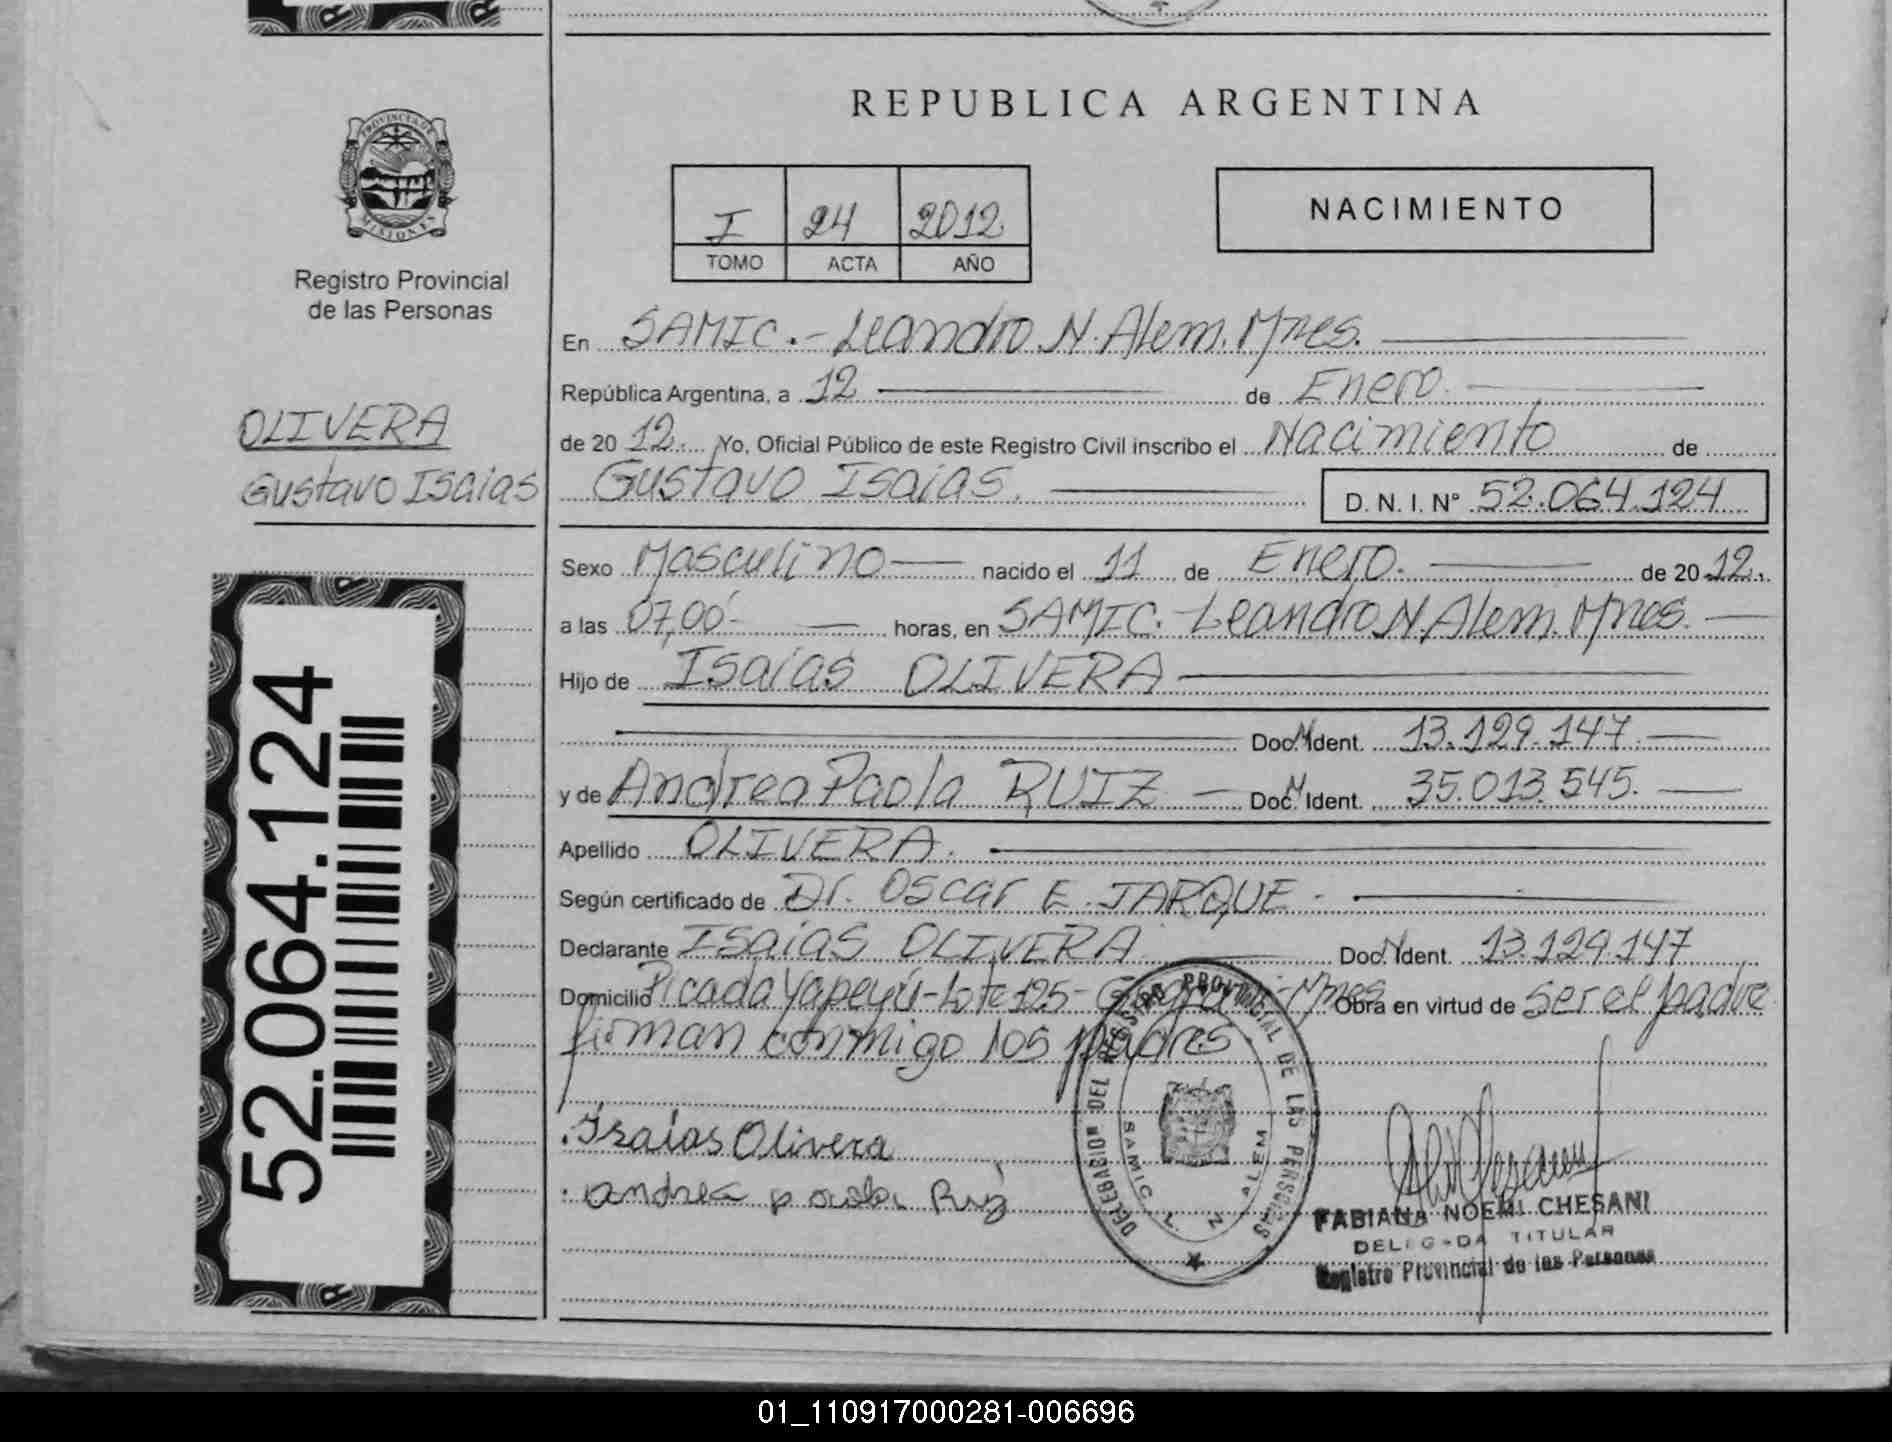 REPUBLICA ARGENTINA
PROVINCIA DE
MISIONES
Registro Provincial
de las Personas
I 24 2012
TOMO ACTA AÑO
NACIMIENTO
En SAMIC.- Leandro N. Alem. Mnes.
República Argentina, a 12 de Enero.
de 20 12. Yo, Oficial Público de este Registro Civil inscribo el Nacimiento de
Gustavo Isaias. D. N. I. N° 52.064.124
OLIVERA
Gustavo Isaias
Sexo Masculino nacido el 11 de Enero. de 20 12.
a las 07,00 horas, en SAMIC.- Leandro N Alem. Mnes.
Hijo de Isaias OLIVERA
Doc. N Ident. 13.129.147.
y de Andrea Paola RUIZ Doc. N Ident. 35.013.545.
Apellido OLIVERA.
Según certificado de Dr. Oscar E. JARQUE.
Declarante Isaias OLIVERA Doc. N Ident. 13.129.147
Domicilio Picada Yapeyú - Lote 125 - Mnes Obra en virtud de ser el padre
firman conmigo los padres.
Isaías Olivera
andrea
DELEGACION DEL REGISTRO PROVINCIAL DE LAS PERSONAS
SAMIC. L. N. ALEM
FABIANA NOEMI CHESANI
DELEGADA TITULAR
Registro Provincial de las Personas
52.064.124
01_110917000281-006696